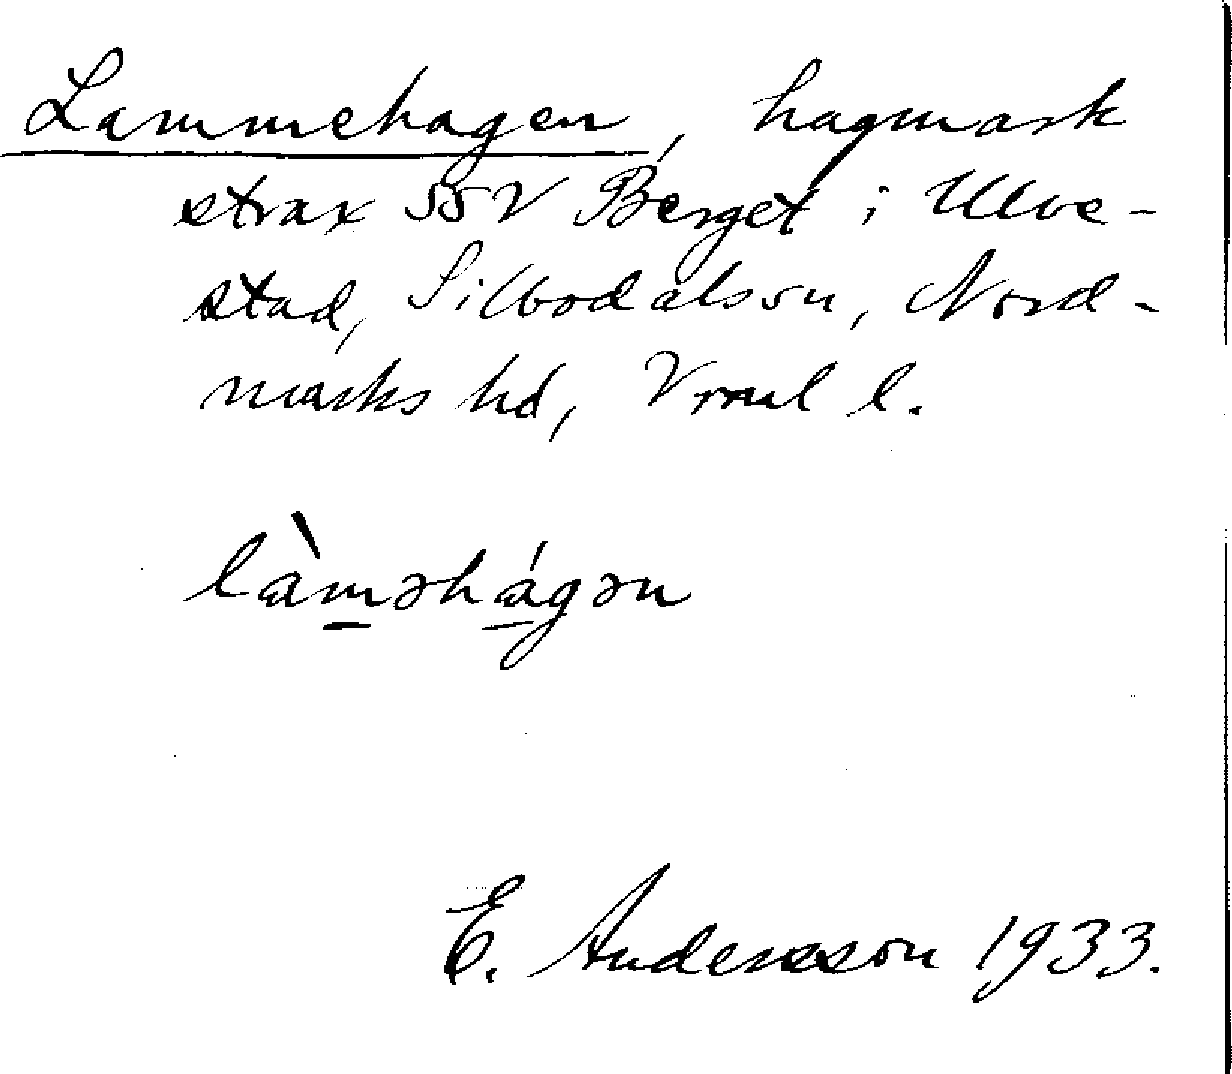 Lammehagen, hagmark
strax SSV Berget i Ulve-
stad, Silbodals sn, Nord-
marks hd, Vrml l.
làm̲əhá̲gən
E. Andersson 1933.